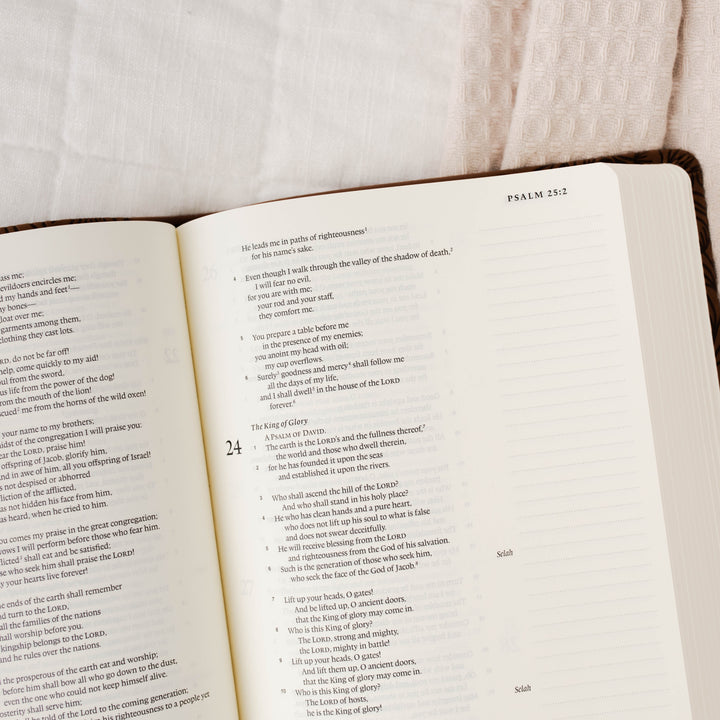 ass me;
evildoers encircles me;
d my hands and feet¹—
y bones—
loat over me;
garments among them,
clothing they cast lots.
RD, do not be far off!
help, come quickly to my aid!
oul from the sword,
us life from the power of the dog!
from the mouth of the lion!
scued² me from the horns of the wild oxen!
your name to my brothers;
midst of the congregation I will praise you:
ear the LORD, praise him!
offspring of Jacob, glorify him,
nd in awe of him, all you offspring of Israel!
s not despised or abhorred
fliction of the afflicted,
as not hidden his face from him,
as heard, when he cried to him.
ou comes my praise in the great congregation;
vows I will perform before those who fear him.
licted³ shall eat and be satisfied;
se who seek him shall praise the LORD!
y your hearts live forever!
e ends of the earth shall remember
nd turn to the LORD,
all the families of the nations
hall worship before you.
kingship belongs to the LORD,
and he rules over the nations.
the prosperous of the earth eat and worship;
before him shall bow all who go down to the dust,
even the one who could not keep himself alive.
osterity shall serve him;
all be told of the Lord to the coming generation;
his righteousness to a people yet
PSALM 25:2
He leads me in paths of righteousness¹
for his name's sake.
4 Even though I walk through the valley of the shadow of death,²
I will fear no evil,
for you are with me;
your rod and your staff,
they comfort me.
5 You prepare a table before me
in the presence of my enemies;
you anoint my head with oil;
my cup overflows.
6 Surely³ goodness and mercy⁴ shall follow me
all the days of my life,
and I shall dwell⁵ in the house of the LORD
forever.⁶
The King of Glory
24 A PSALM OF DAVID.
1 The earth is the LORD's and the fullness thereof,⁷
the world and those who dwell therein,
2 for he has founded it upon the seas
and established it upon the rivers.
3 Who shall ascend the hill of the LORD?
And who shall stand in his holy place?
4 He who has clean hands and a pure heart,
who does not lift up his soul to what is false
and does not swear deceitfully.
5 He will receive blessing from the LORD
and righteousness from the God of his salvation.
6 Such is the generation of those who seek him,
who seek the face of the God of Jacob.⁸ Selah
7 Lift up your heads, O gates!
And be lifted up, O ancient doors,
that the King of glory may come in.
8 Who is this King of glory?
The LORD, strong and mighty,
the LORD, mighty in battle!
9 Lift up your heads, O gates!
And lift them up, O ancient doors,
that the King of glory may come in.
10 Who is this King of glory?
The LORD of hosts,
he is the King of glory! Selah